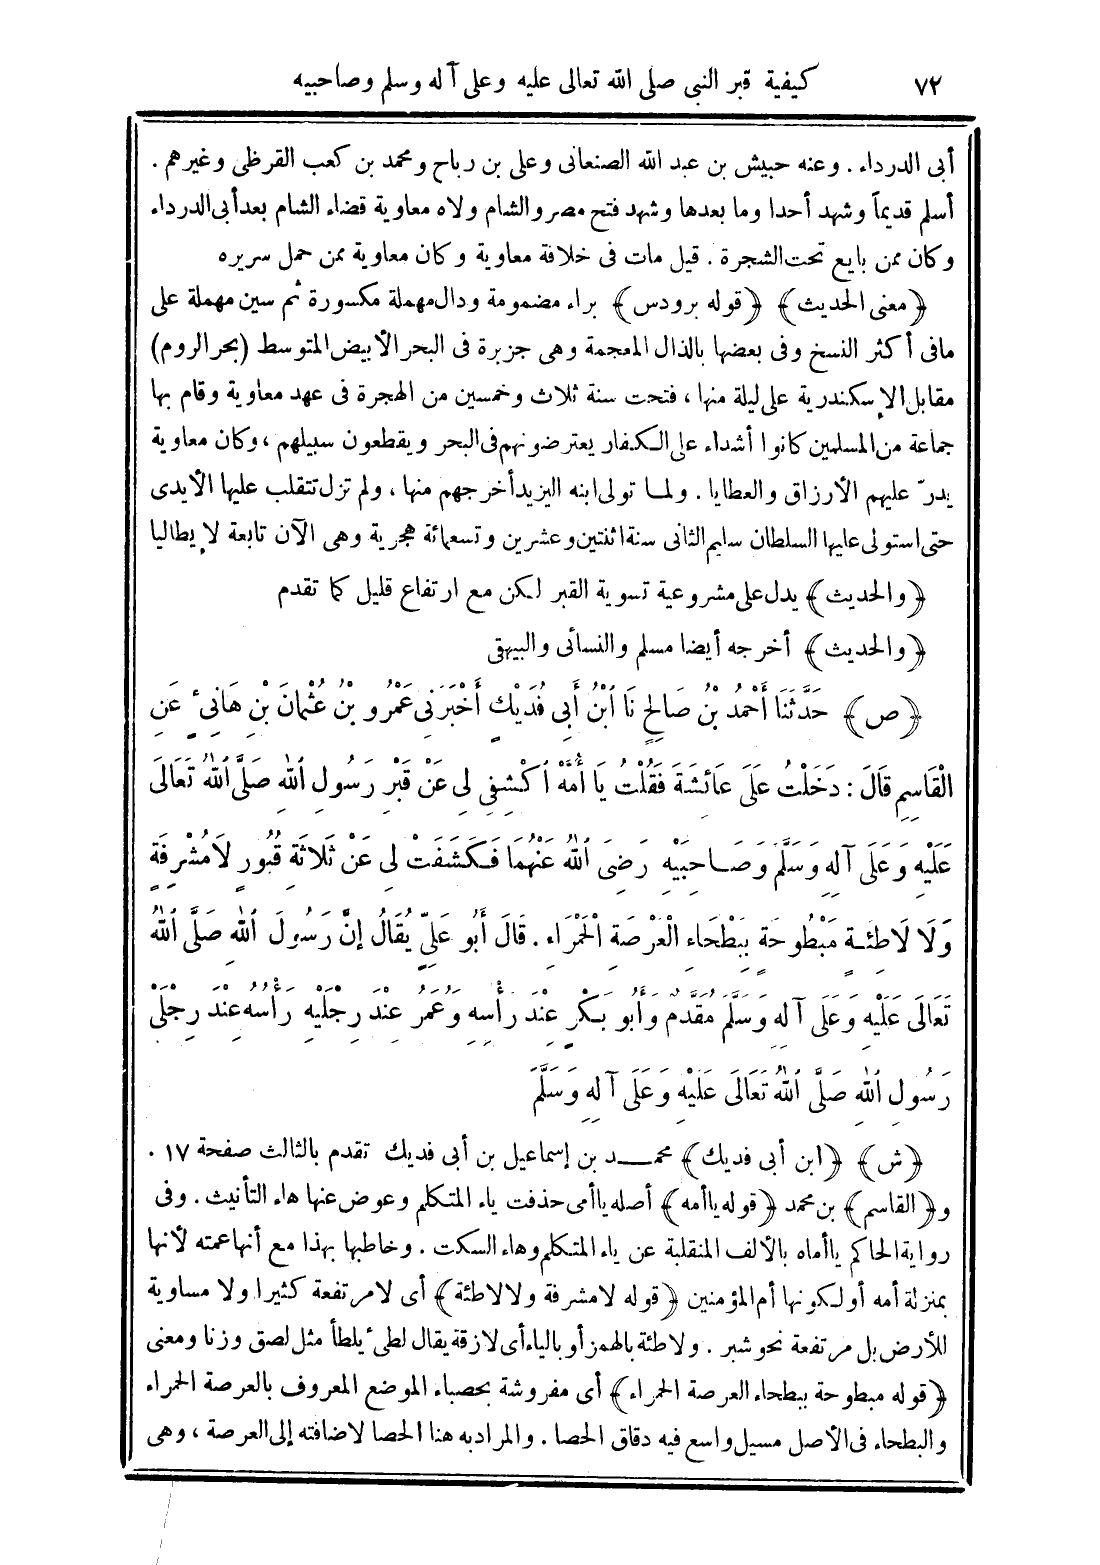 ٧٢ كيفية قبر النبى صلى الله تعالى عليه وعلى آله وسلم وصاحبيه
أبى الدرداء . وعنه حبيش بن عبد الله الصنعانى وعلى بن رباح ومحمد بن كعب القرظى وغيرهم .
أسلم قديماً وشهد أحدا وما بعدها وشهد فتح مصر والشام ولاه معاوية قضاء الشام بعد أبى الدرداء
وكان ممن بايع تحت الشجرة . قيل مات فى خلافة معاوية وكان معاوية ممن حمل سريره
﴿معنى الحديث﴾ ﴿قوله برودس﴾ براء مضمومة ودال مهملة مكسورة ثم سين مهملة على
مافى أكثر النسخ وفى بعضها بالذال المعجمة وهى جزيرة فى البحر الأبيض المتوسط (بحر الروم)
مقابل الإسكندرية على ليلة منها ، فتحت سنة ثلاث وخمسين من الهجرة فى عهد معاوية وقام بها
جماعة من المسلمين كانوا أشداء على الكفار يعترضونهم فى البحر ويقطعون سبيلهم ، وكان معاوية
يدرّ عليهم الأرزاق والعطايا . ولما تولى ابنه اليزيد أخرجهم منها ، ولم تزل تتقلب عليها الأيدى
حتى استولى عليها السلطان سليم الثانى سنة اثنتين وعشرين وتسعمائة هجرية وهى الآن تابعة لإيطاليا
﴿والحديث﴾ يدل على مشروعية تسوية القبر لكن مع ارتفاع قليل كما تقدم
﴿والحديث﴾ أخرجه أيضا مسلم والنسائى والبيهقى
﴿ص﴾ حَدَّثَنَا أَحْمَدُ بْنُ صَالِحٍ نَا ابْنُ أَبِى فُدَيْكٍ أَخْبَرَنِى عَمْرُو بْنُ عُثْمَانَ بْنِ هَانِىءٍ عَنِ
الْقَاسِمِ قَالَ : دَخَلْتُ عَلَى عَائِشَةَ فَقُلْتُ يَا أُمَّهْ اكْشِفِى لِى عَنْ قَبْرِ رَسُولِ اللهِ صَلَّى اللهُ تَعَالَى
عَلَيْهِ وَعَلَى آلِهِ وَسَلَّمَ وَصَاحِبَيْهِ رَضِىَ اللهُ عَنْهُمَا فَكَشَفَتْ لِى عَنْ ثَلَاثَةِ قُبُورٍ لَا مُشْرِفَةٍ
وَلَا لَاطِئَةٍ مَبْطُوحَةٍ بِبَطْحَاءِ الْعَرْصَةِ الْحَمْرَاءِ . قَالَ أَبُو عَلِىٍّ يُقَالُ إِنَّ رَسُولَ اللهِ صَلَّى اللهُ
تَعَالَى عَلَيْهِ وَعَلَى آلِهِ وَسَلَّمَ مُقَدَّمٌ وَأَبُو بَكْرٍ عِنْدَ رَأْسِهِ وَعُمَرُ عِنْدَ رِجْلَيْهِ رَأْسُهُ عِنْدَ رِجْلَىْ
رَسُولِ اللهِ صَلَّى اللهُ تَعَالَى عَلَيْهِ وَعَلَى آلِهِ وَسَلَّمَ
﴿ش﴾ ﴿ابن أبى فديك﴾ محمـد بن إسماعيل بن أبى فديك تقدم بالثالث صفحة ١٧ .
و﴿القاسم﴾ بن محمد ﴿قوله ياأمه﴾ أصله ياأمى حذفت ياء المتكلم وعوض عنها هاء التأنيث . وفى
رواية الحاكم ياأماه بالألف المنقلبة عن ياء المتكلم وهاء السكت . وخاطبها بهذا مع أنها عمته لأنها
بمنزلة أمه أو لكونها أم المؤمنين ﴿قوله لا مشرفة ولا لاطئة﴾ أى لا مرتفعة كثيرا ولا مساوية
للأرض بل مرتفعة نحو شبر . ولاطئة بالهمز أو بالياء أى لازقة يقال لطىء يلطأ مثل لصق وزنا ومعنى
﴿قوله مبطوحة ببطحاء العرصة الحمراء﴾ أى مفروشة بحصباء الموضع المعروف بالعرصة الحمراء
والبطحاء فى الأصل مسيل واسع فيه دقاق الحصا . والمراد به هنا الحصا لاضافته إلى العرصة ، وهى